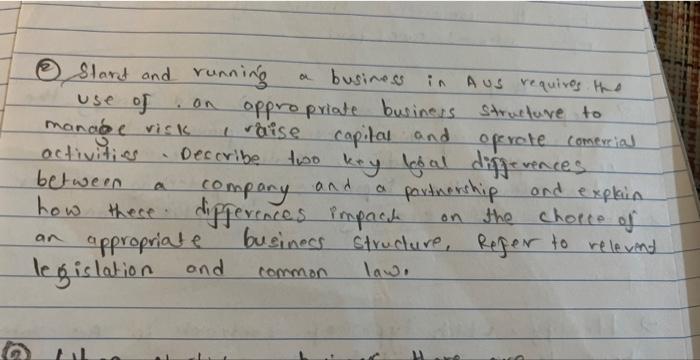 ② Stard and running a business in AUS requires the
use of . an appropriate business structure to
manage risk , raise capital and operate comercial
activities . Deccribe two key legal differences
between a company and a partnership and explain
how thece differences impack on the choice of
an appropriate business structure, Refer to relevend
legislation and common law.